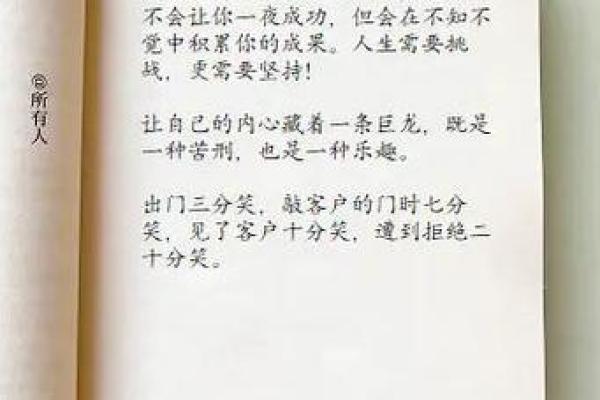 不会让你一夜成功，但会在不知不
觉中积累你的成果。人生需要挑
战，更需要坚持！
让自己的内心藏着一条巨龙，既是
一种苦刑，也是一种乐趣。
出门三分笑，敲客户的门时七分
笑，见了客户十分笑，遭到拒绝二
十分笑。
@所有人